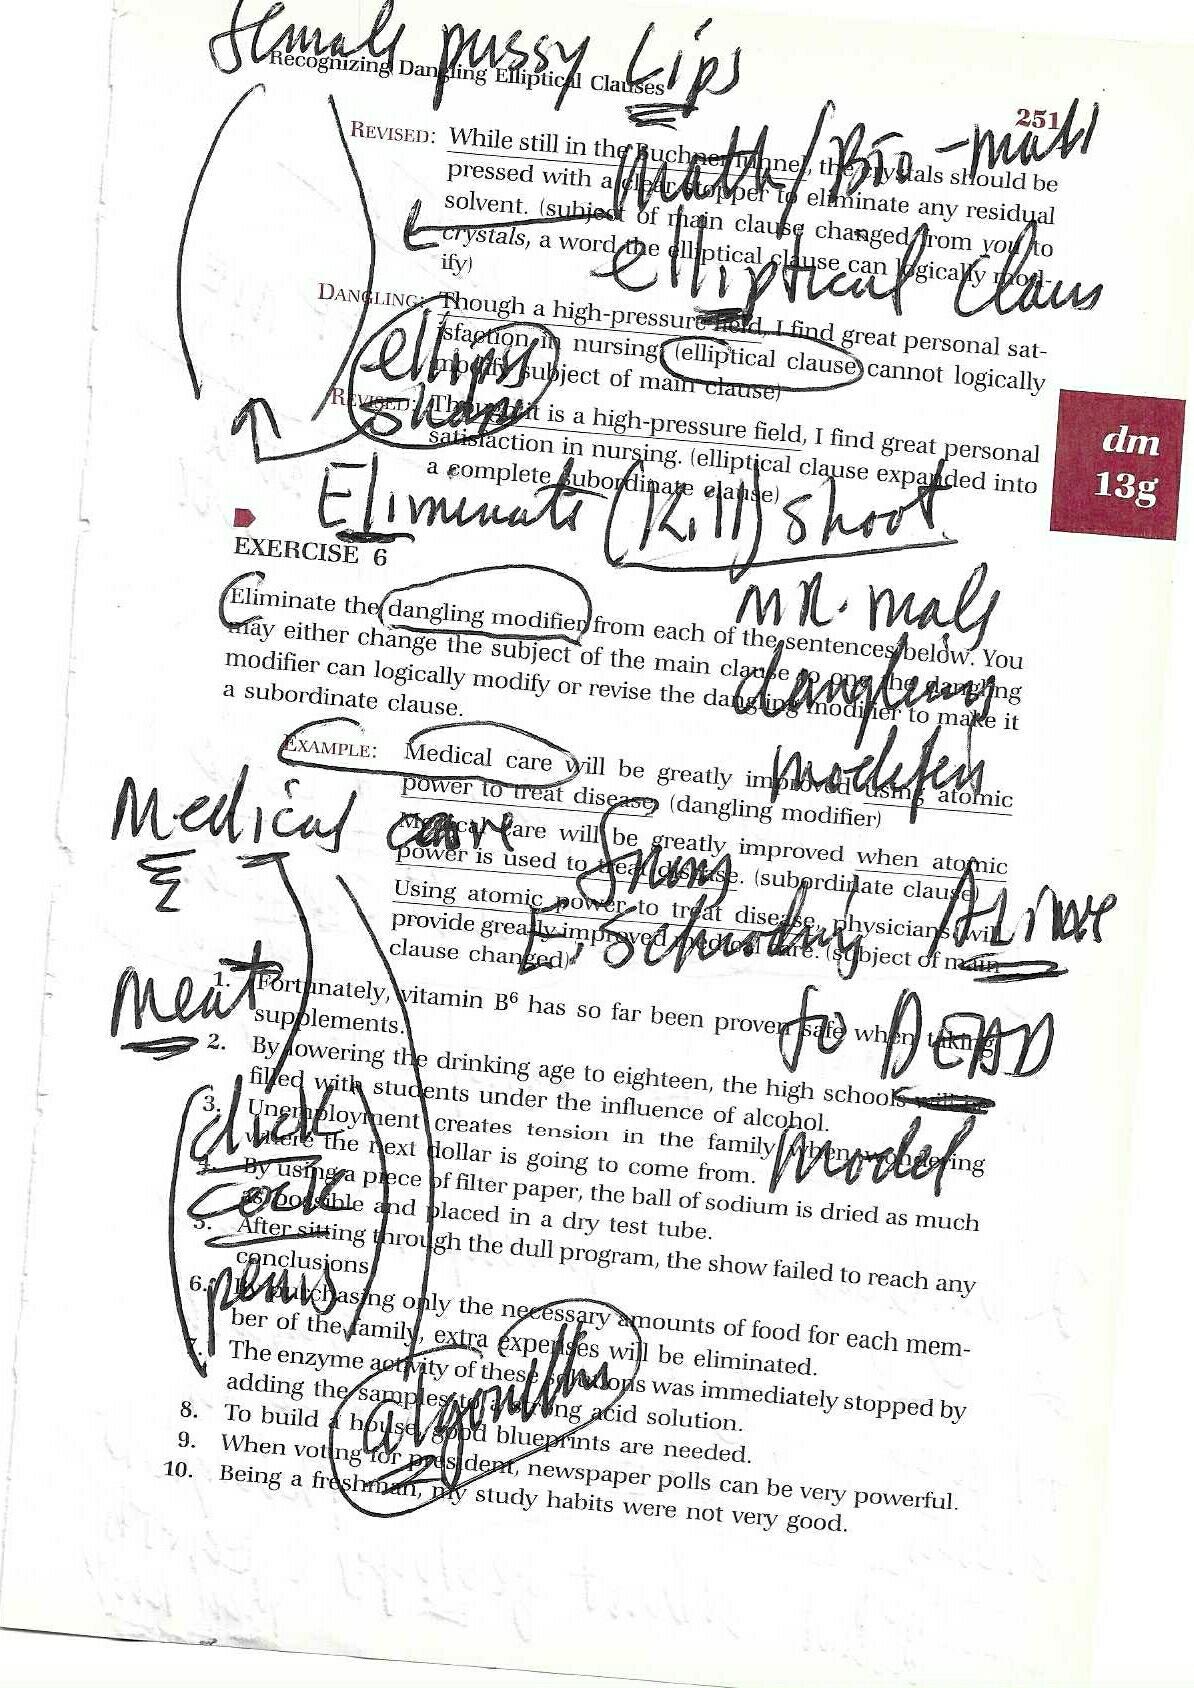 female pussy Lips
Recognizing Dangling Elliptical Clauses
251
Math/Bio-math
REVISED: While still in the Buchner funnel, the crystals should be
pressed with a clear stopper to eliminate any residual
solvent. (subject of main clause changed from you to
crystals, a word the elliptical clause can logically mod-
ify)
elliptical Claus
DANGLING: Though a high-pressure field, I find great personal sat-
isfaction in nursing. (elliptical clause cannot logically
modify subject of main clause)
ellips
shape
REVISED: Though it is a high-pressure field, I find great personal
satisfaction in nursing. (elliptical clause expanded into
a complete subordinate clause)
dm
13g
Eliminate (Kill) shoot
EXERCISE 6
Eliminate the dangling modifier from each of the sentences below. You
may either change the subject of the main clause so one the dangling
modifier can logically modify or revise the dangling modifier to make it
a subordinate clause.
MR. male
dangling
modifier
EXAMPLE: Medical care will be greatly improved using atomic
power to treat disease. (dangling modifier)
Medical care will be greatly improved when atomic
power is used to treat disease. (subordinate clause)
Using atomic power to treat disease, physicians will
provide greatly improved medical care. (subject of main
clause changed)
Medical care
from
ALive
to DEAD
model
meat
dick
cock
penis
1. Fortunately, vitamin B6 has so far been proven safe when taking
supplements.
2. By lowering the drinking age to eighteen, the high schools will be
filled with students under the influence of alcohol.
3. Unemployment creates tension in the family when wondering
where the next dollar is going to come from.
4. By using a piece of filter paper, the ball of sodium is dried as much
as possible and placed in a dry test tube.
5. After sitting through the dull program, the show failed to reach any
conclusions.
6. By purchasing only the necessary amounts of food for each mem-
ber of the family, extra expenses will be eliminated.
7. The enzyme activity of these solutions was immediately stopped by
adding the samples to a strong acid solution.
8. To build a house, good blueprints are needed.
9. When voting for president, newspaper polls can be very powerful.
10. Being a freshman, my study habits were not very good.